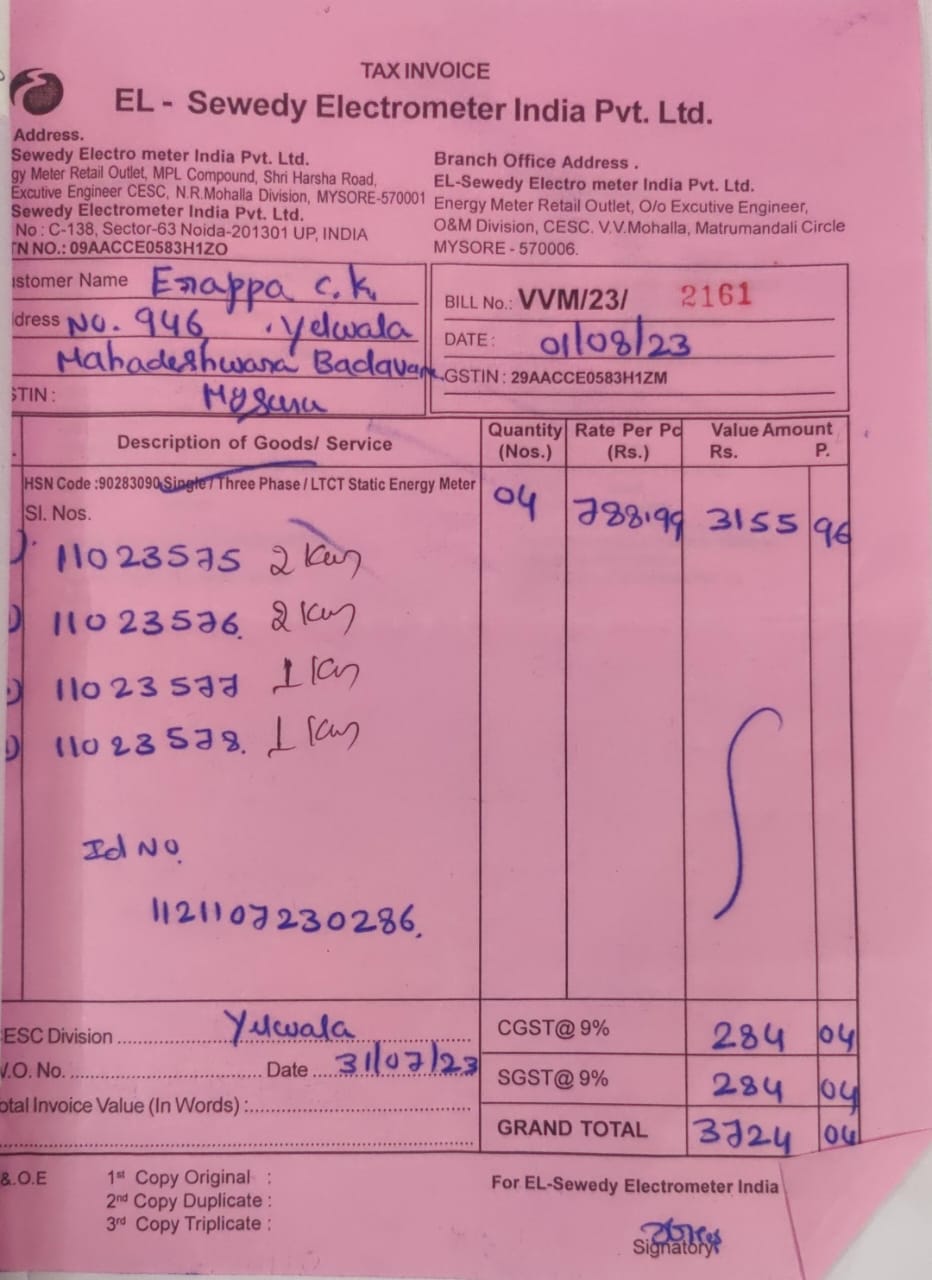 TAX INVOICE
EL - Sewedy Electrometer India Pvt. Ltd.
Address.
Sewedy Electro meter India Pvt. Ltd.
gy Meter Retail Outlet, MPL Compound, Shri Harsha Road,
Excutive Engineer CESC, N.R.Mohalla Division, MYSORE-570001
Sewedy Electrometer India Pvt. Ltd.
No : C-138, Sector-63 Noida-201301 UP, INDIA
TN NO.: 09AACCE0583H1ZO
Branch Office Address .
EL-Sewedy Electro meter India Pvt. Ltd.
Energy Meter Retail Outlet, O/o Excutive Engineer,
O&M Division, CESC. V.V.Mohalla, Matrumandali Circle
MYSORE - 570006.
stomer Name Erappa C.K,
dress No. 946, Yelwala
Mahadeshwara Badavane
STIN : Mysuru
BILL No.: VVM/23/ 2161
DATE : 01/08/23
GSTIN : 29AACCE0583H1ZM
Description of Goods/ Service Quantity (Nos.) Rate Per Pc (Rs.) Value Amount Rs. P.
HSN Code :90283090 Single / Three Phase / LTCT Static Energy Meter
04 788.99 3155 96
Sl. Nos.
11023575 2 KW
11023576. 2 KW
11023577 1 KW
11023578. 1 KW
Id No.
1121107230286.
ESC Division Yelwala
V.O. No. Date 31/07/23
otal Invoice Value (In Words) :
CGST@ 9% 284 04
SGST@ 9% 284 04
GRAND TOTAL 3724 04
&.O.E
1st Copy Original :
2nd Copy Duplicate :
3rd Copy Triplicate :
For EL-Sewedy Electrometer India
Signatory